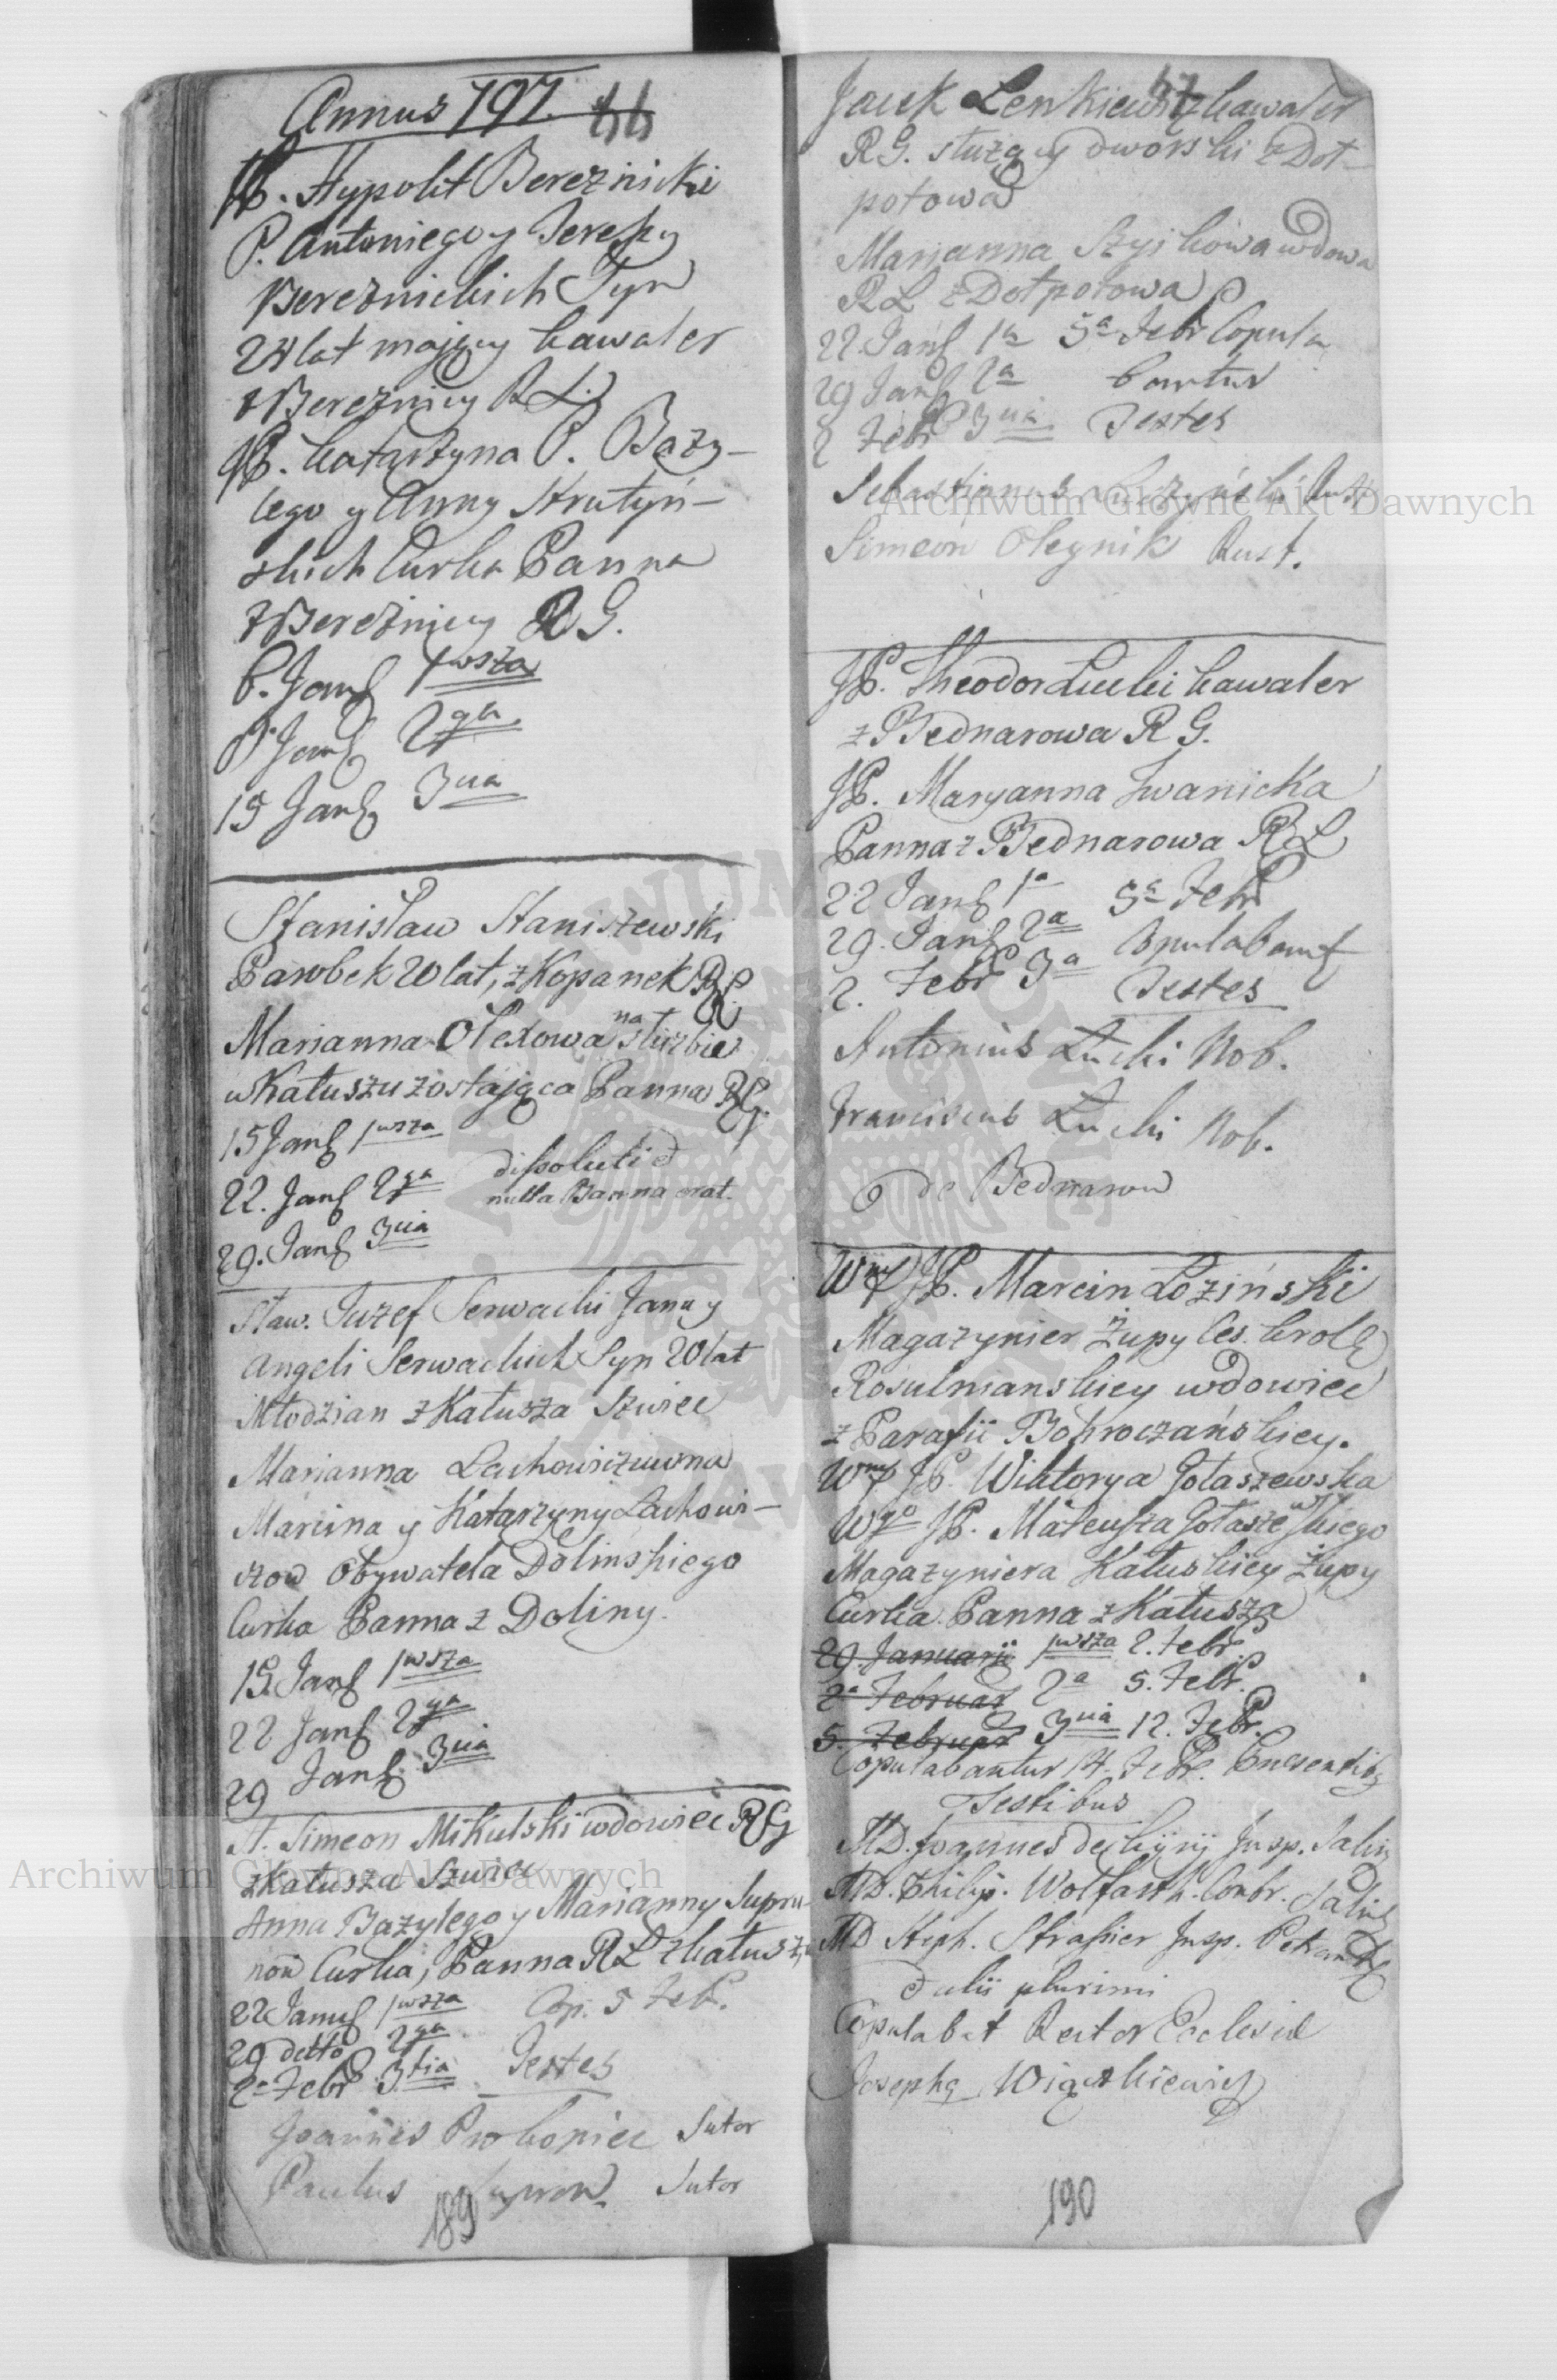 Annus 797. 44
JP. Hypolit Bereznicki
P. Antoniego y Teressy
Bereznickich Syn
24 lat maiący kawaler
z Bereznicy R L.
JP. Katarzyna P. Bazy-
lego y Anny Strutyń-
skich Curka Panna
z Bereznicy R G.
6. Jan 1wsza
8. Jan 2ga
15 Jan 3cia
Stanisław Staniszewski
Parobek 20 lat, z Kopanek RL
Marianna Olexowa na służbie
w Kałuszu zostająca Panna RG.
15 Jan 1wsza
22. Jan 2ga dissoluti
nulla Banna erat.
29. Jan 3cia
Sław. Juzef Serwacki Jana y
Angeli Serwackich Syn 20 lat
Młodzian z Kałusza Szwiec
Marianna Lachowiczuwna
Marcina y Katarzyny Lachowi-
czow Obywatela Dolinskiego
Curka Panna z Doliny.
15. Jan 1wsza
22 Jan 2ga
29 Jan 3cia
Simeon Mikulski wdowiec RG
z Kałusza Szwiec
Anna Bazylego y Marianny Supru-
now Curka, Panna RL z Kałusza
22 Janu 1wsza Cop. 5 Feb.
29 detto 2ga
2a Febr 3tia Testes
Joannes Prokopiec Sutor
Paulus Suprun Sutor
189
Jacek Lenkiewicz kawaler
47
RG. służący dworski z Doł-
potowa
Marianna Szyikowa wdowa
RL z Dołpotowa
22. Jan 1a 5a Febr Copula
29 Jan 2a bantur
2 Febr 3cia Testes
Sebastianus Rust
Simeon Oleynik Rust.
JP. Theodor Łucki kawaler
z Bednarowa R G.
JP. Maryanna Iwanicka
Panna z Bednarowa RL
22 Jan 1a 5a Febr
29. Jan 2a Copulabant
2. Febr 3a Testes
Antonius Łucki Nob.
Franciscus Łucki Nob.
de Bednarow
Wny JP. Marcin Łoziński
Magazynier Żupy Ces. krole
Rosulnianskiey wdowiec
z Parafii Bohroczańskiey.
Wny JP. Wiktorya Gołaszewska
Wgo JP. Mateusza Gołaszewskiego
Magazyniera Kałuskiey Żupy
Curka Panna z Kałusza
29. Januarii 1wsza 2. Febr.
2a Februar 2a 5. Febr.
5. Februar 3cia 12. Febr.
Copulabantur 14. Febr. Presentib
Testibus
MD. Joannes Insp. Salin
MD. Philip. Wolfarth. Contr. Salin
MD Steph. Strassier Insp.
alii plurimi
Copulabat Rector Ecclesiæ
Joseph
190
Archiwum Główne Akt Dawnych
Archiwum Główne Akt Dawnych